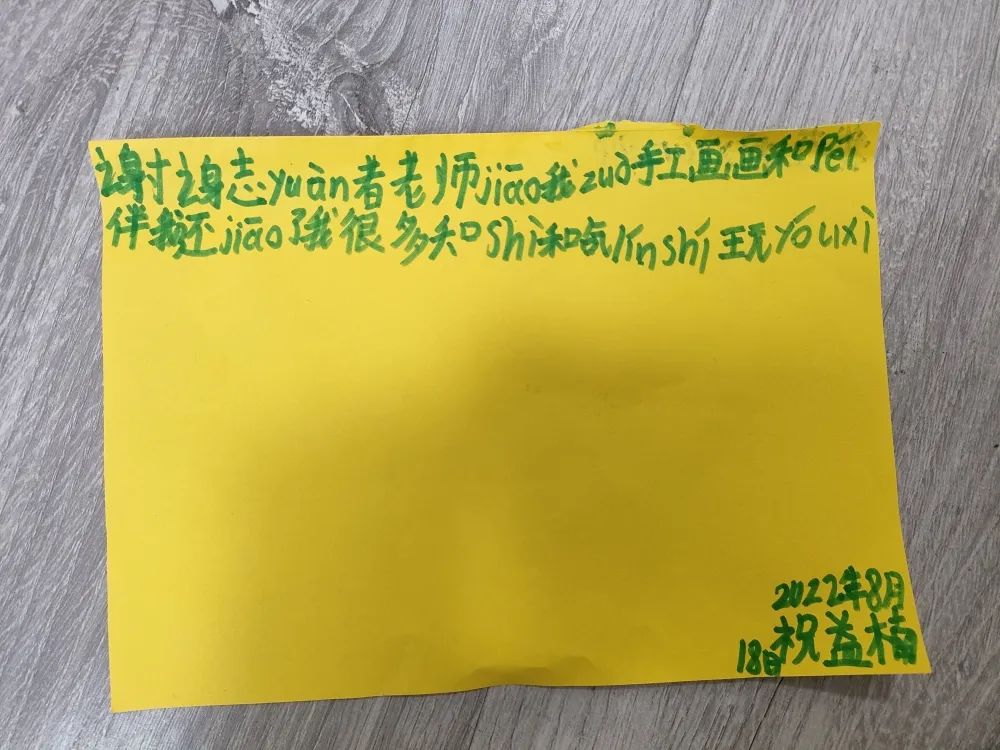 谢谢志yuàn者老师jiāo我zuò手工画画和Péi
伴我还jiāo了我很多知shi和吃línshí玩yóuxì
2022年8月
18日祝益楠